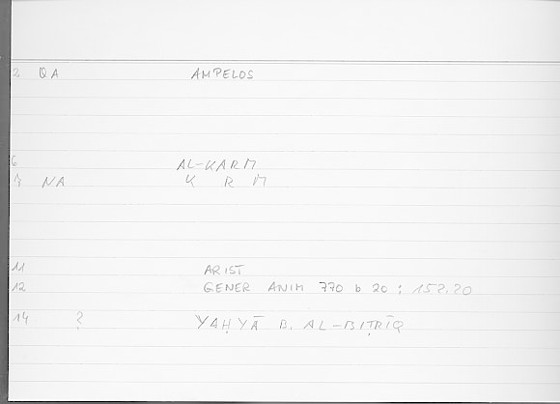 2 QA AMPELOS
6 AL-KARM
7 NA K R M
11 ARIST
12 GENER ANIM 770 b 20 : 152.20
14 ? YAḤYĀ B. AL-BIṬRĪQ